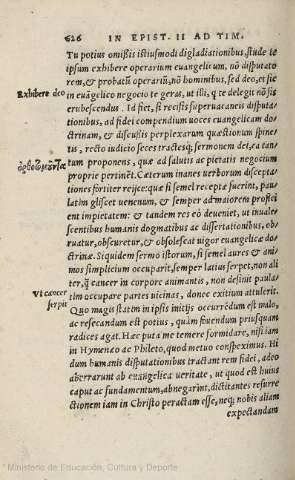 626 IN EPIST. II AD TIM.
Tu potius omissis istiusmodi digladiationibus, stude te
ipsum exhibere operarium euangelicum, nõ disputato
rem, & probatũ operariũ, nõ hominibus, sed deo, et sic
Exhibere deo
in euãgelico negocio te geras, ut illi, q̃ te delegit nõ sis
erubescendus. Id fiet, si recisis superuacaneis disputa-
tionibus, ad fidei compendium uoces euangelicam do
ctrinam, & discussis perplexarum quæstionum spine-
tis, recto iudicio seces tractesq; sermonem dei, ea tan-
ὀρθοτομοῦντα
tum proponens, quæ ad salutis ac pietatis negocium
proprie pertinẽt. Cæterum inanes uerborum discepta-
tiones fortiter reijce: quæ si semel receptæ fuerint, pau-
latim gliscet uenenum, & semper ad maiorem profici
ent impietatem: & tandem res eò deueniet, ut inuale-
scentibus humanis dogmatibus ac dissertationibus, ob-
ruatur, obscuretur, & obsolescat uigor euangelicæ do-
ctrinæ. Siquidem sermo istorum, si semel aures & ani-
mos simplicium occuparit, semper latius serpet, non ali
ter, q̃ cancer in corpore animantis, non desinit paula-
Vt cancer
tim occupare partes uicinas, donec exitium attulerit.
serpit
Quo magis statim in ipsis initijs occurrẽdum est malo,
ac resecandum est potius, quàm fouendum priusquam
radices agat. Hæc puta me temere formidare, nisi iam
in Hymenæo ac Phileto, quod metuo conspeximus. Hi
dum humanis disputationibus tractant rem fidei, adeo
aberrarunt ab euãgelica ueritate, ut quod est huius
caput ac fundamentum, abnegarint, dictitantes resurre
ctionem iam in Christo peractam esse, neq; nobis aliam
expectandam
Ministerio de Educación, Cultura y Deporte